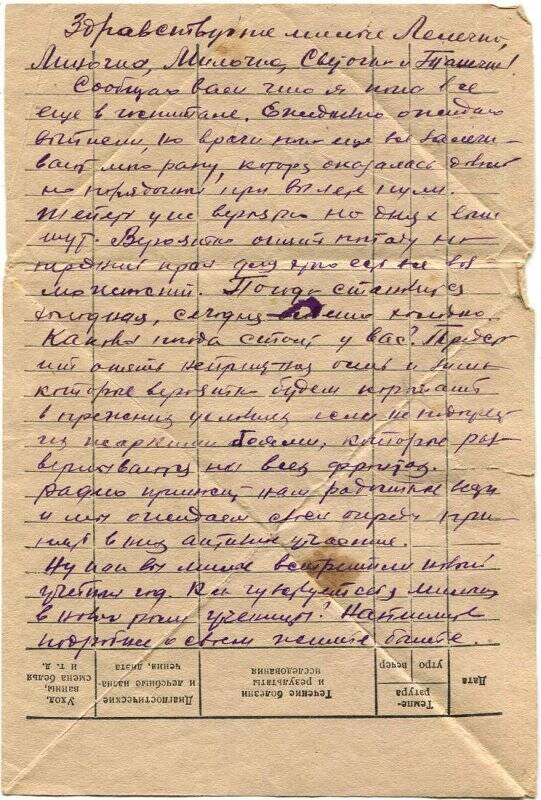 Здравствуйте милые Лелечка,
Милочка, Светочка и Танечка!
Сообщаю вам что я пока все
еще в госпитале. Ежедневно ожидаю
выписки, но врачи пока еще не залечи-
вают мою рану, котора оказалась
но порядочной при вылете пули.
Теперь уже вероятно на днях выпи
шут. Вероятно опять попаду на
передний край для этого есть все воз
можности. Погода становится
холодная, сегодня очень холодно.
Какова погода стоит у вас? Предсто
ит опять неприятная осень и зима
которые вероятно будем коротать
в прежних условиях если не подогреть
их жаркими боями, которые раз
вертываются на всех фронтах.
Радио приносит нам радостные вести
и мы ожидаем своей очереди при
нять в них активное участие.
Ну как вы милые встретили новый
учебный год. Как чувствуется милочка
в новой роли ученицы? Напишите
подробно о своем житье бытье.
Дата
Темпе-
ратура
утро
вечер
Течение болезни
и результаты
исследования
Диагностические
и лечебные назна-
чения, диета
Уход,
ванны,
смена белья
и т. д.